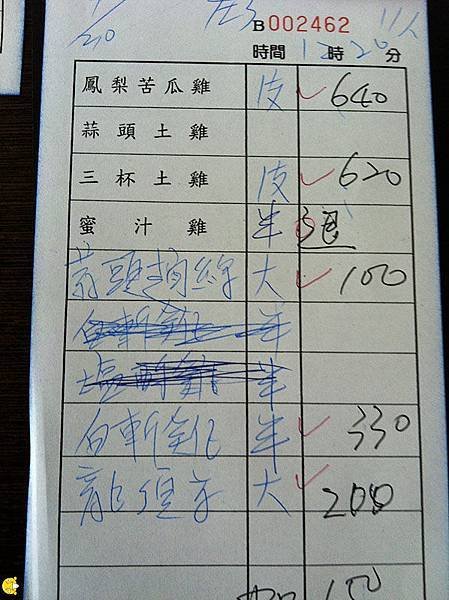 1/20 左3 B 002462 11人
時間 12時20分
鳳梨苦瓜雞 皮 640
蒜頭土雞
三杯土雞 皮 620
蜜汁雞 半 退
大 100
白斬 半
半
白斬 半 330
龍須 大 200
100